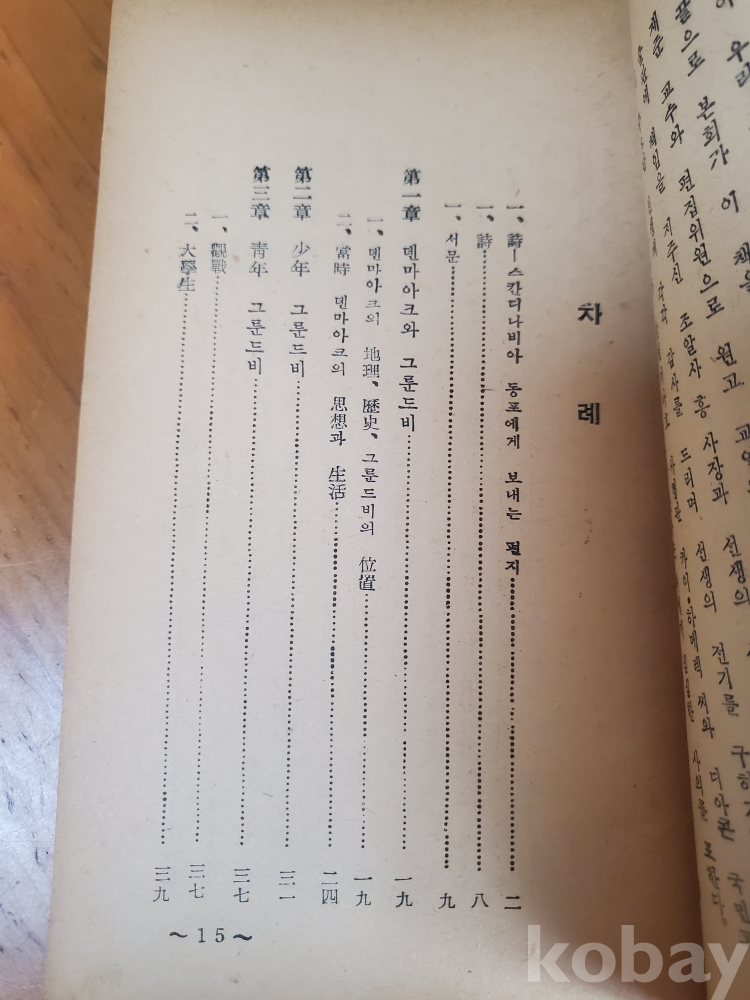 이 우리
끝으로 본회가 이 책을 원고 교열
재준 교수와 편집위원으로 조알사 흥 사장과 선생의
책임을 지주신 각각 감사를 드리며 선생의 전기를 구하
카이·하메릭 씨와 디아콘 국민
사의를 표한다.
차례
一、詩―스칸디나비아 동포에게 보내는 편지……二
一、詩……八
一、서문……九
第一章 덴마아크와 그룬드비……一九
一、덴마아크의 地理、歷史、그룬드비의 位置……一九
二、當時 덴마아크의 思想과 生活……二四
第二章 少年 그룬드비……三一
第三章 靑年 그룬드비……三七
一、觀戰……三七
二、大學生……三九
~15~
kobay